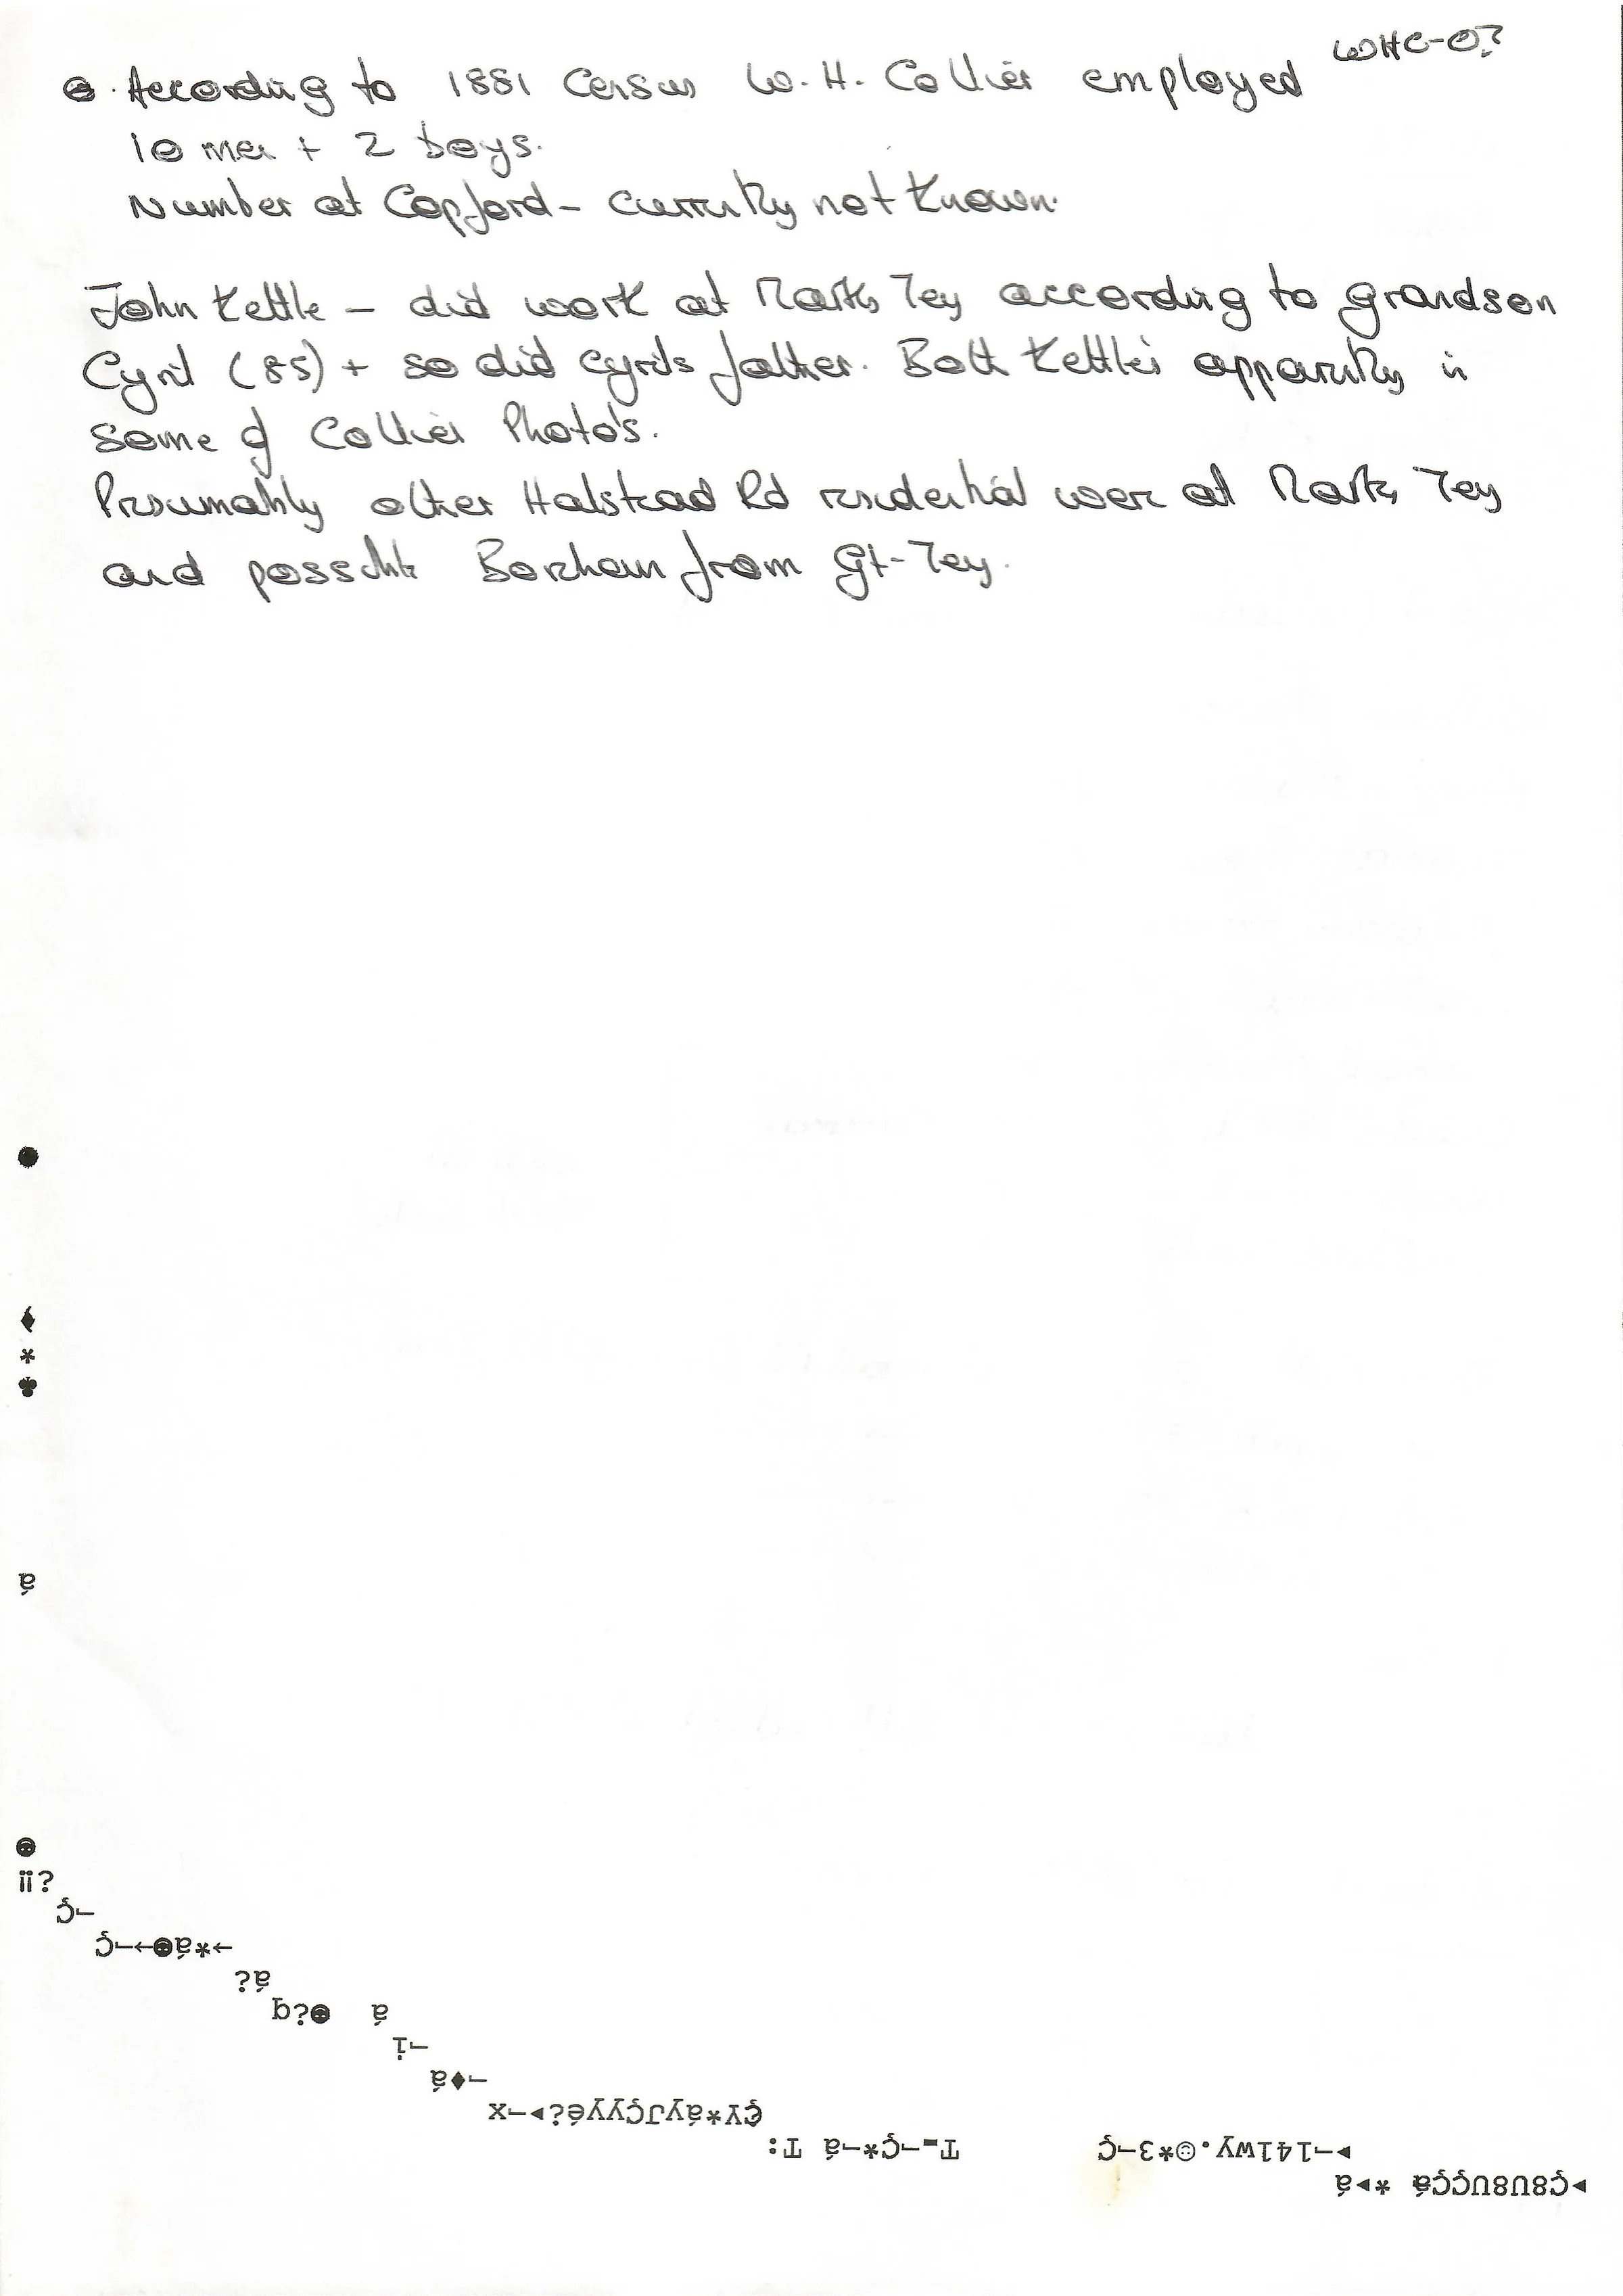 WHC-0?
According to 1881 Census W. H. Collier employed
10 men + 2 boys.
Number at Copford - currently not known.
John Kettle - did work at Marks Tey according to grandson
Cyril (85) + so did Cyril's father. Both Kettles apparently in
some of Collier Photo's.
Presumably other Halstead Rd residential were at Marks Tey
and possible Boreham from Gt-Tey.